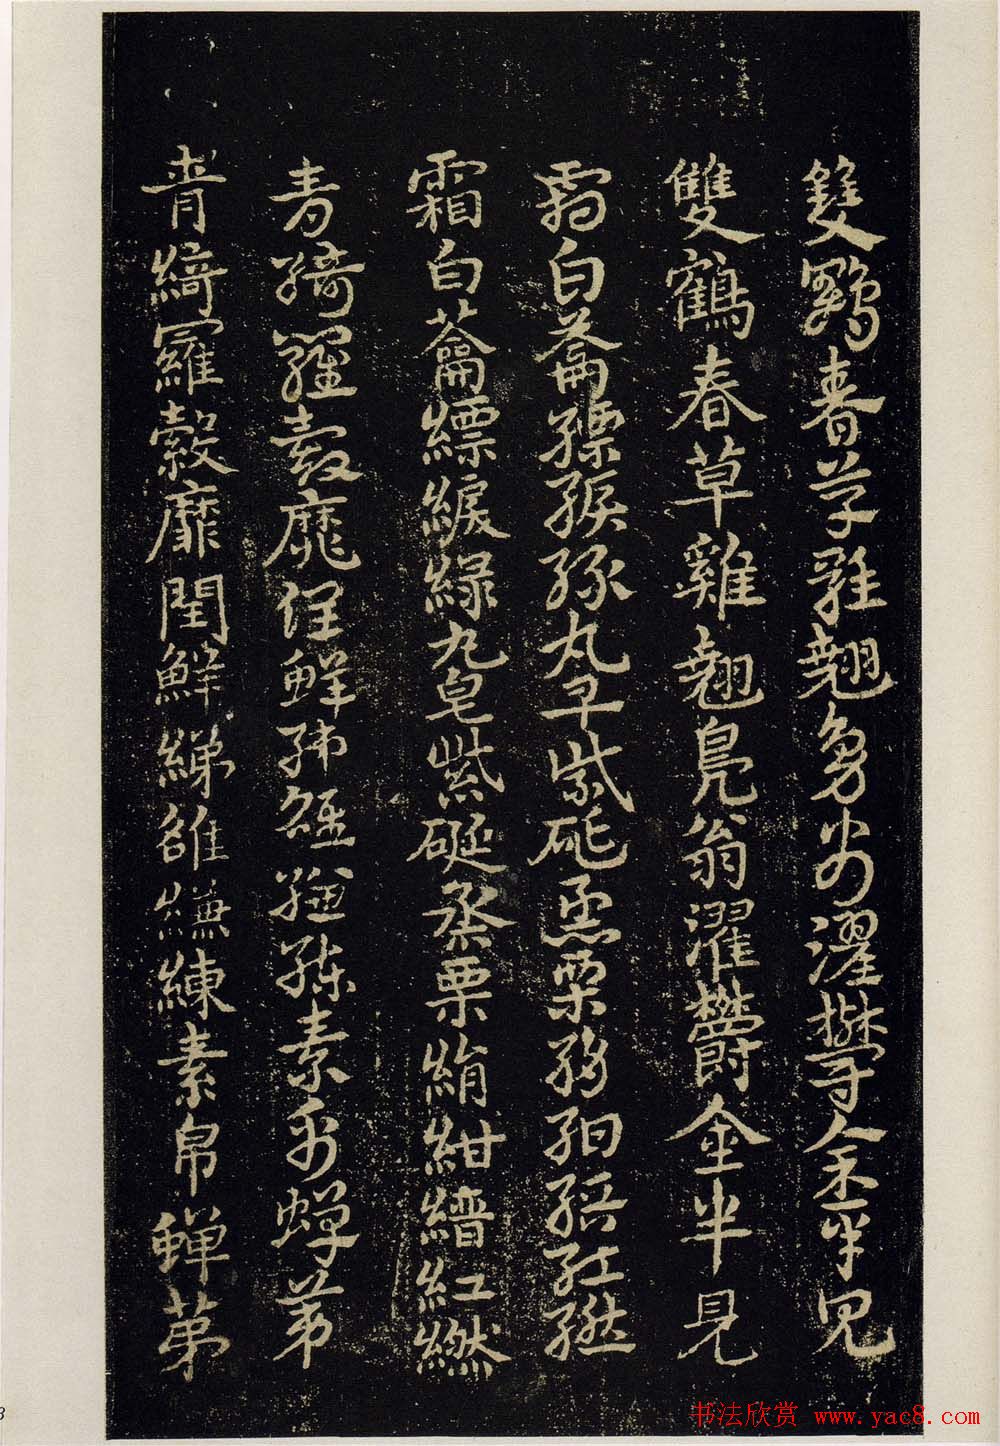 雙鶴春草雞翹鳧翁濯鬱金半見
雙鶴春草雞翹鳧翁濯鬱金半見
霜白蘥縹綟綠丸皂紫硟烝栗絹紺縉紅繎
霜白蘥縹綟綠丸皂紫硟烝栗絹紺縉紅繎
青綺羅縠靡閏鮮綈雒縑練素帛蟬苐
青綺羅縠靡閏鮮綈雒縑練素帛蟬苐
书法欣赏 www.yac8.com